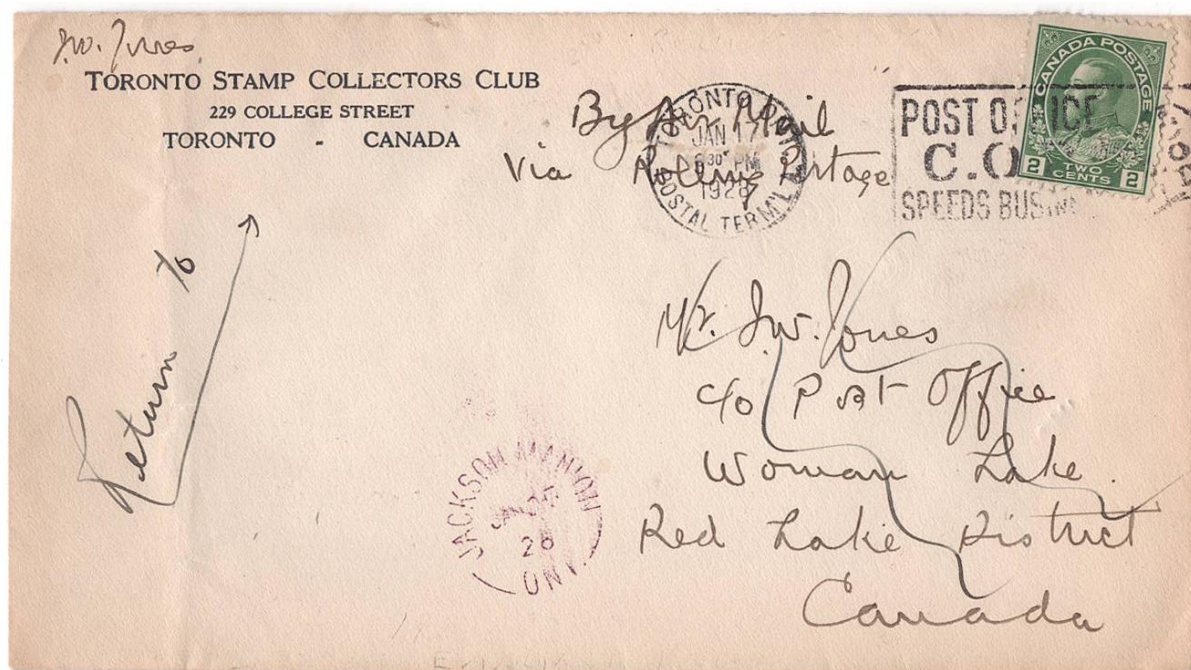 J.W. Jones
TORONTO STAMP COLLECTORS CLUB
229 COLLEGE STREET
TORONTO - CANADA
By Air Mail
via Rolling Portage
TORONTO
JAN 17
30 PM
1928
POSTAL TERM'L
POST OFFICE
C.O
SPEEDS BUSIN
CANADA POSTAGE
2 TWO CENTS 2
Return to
Mr. J.W. Jones
c/o Post Office
Woman Lake.
Red Lake District
Canada
JACKSON MANION
28
ONT.